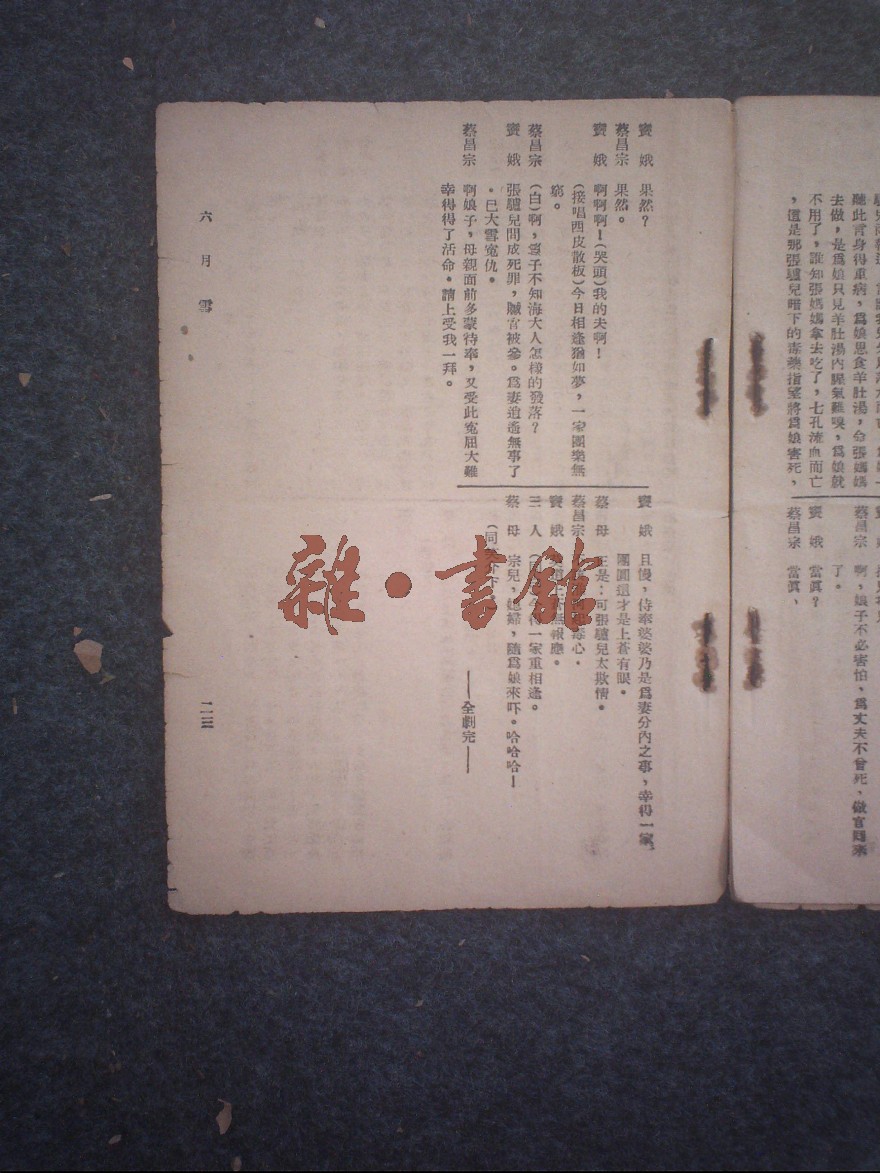 聽此言身得重病，爲娘思食羊肚湯，命張媽媽
去做，是爲娘只見羊肚湯內腥氣難嗅，爲娘就
不用了，誰知張媽媽拿去吃了，七孔流血而亡
，這是那張驢兒暗下的毒藥指望將爲娘害死，
蔡昌宗　啊，娘子不必害怕，爲丈夫不曾死，做官囘來
了。
竇　娥　當眞？
蔡昌宗　當眞、
竇　娥　果然？
蔡昌宗　果然。
竇　娥　啊啊啊！（哭頭）我的夫啊！
（接唱西皮散板）今日相逢猶如夢，一家團樂無
窮。
蔡昌宗　（白）啊，妻子不知海大人怎樣的發落？
竇　娥　張驢兒問成死罪，贓官被參。爲妻逍遙無事了
。已大雪寃仇。
蔡昌宗　啊娘子，母親面前多蒙待奉，又受此寃屈大難
幸得得了活命。請上受我一拜。
竇　娥　且慢，侍奉婆婆乃是爲妻分內之事，幸得一家
團圓這才是上蒼有眼。
蔡　母　正是：可張驢兒太欺情。
蔡昌宗　毒心。
竇　娥　報應。
三　人　得一家重相逢。
蔡　母　宗兒，媳婦，隨爲娘來吓。哈哈哈！
（同　下
——全劇完——
六月雪
二三
雜·書館